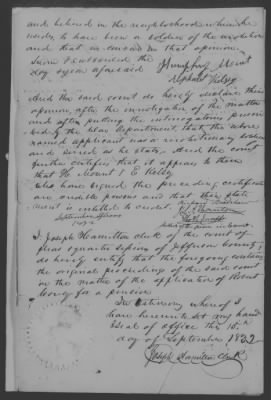 and believed in the neighborhood where he
resides, to have been a soldier of the revolution
and that we concur in that opinion.
Sworn & subscribed the
day & year aforesaid Humphrey Mount
Elephalet Kelsy
And the said court do hereby declare their
opinion, after the investigation of the matter
and after putting the interrogatories prescri
bed by the War department, that the above
named applicant was a revolutionary soldier
and served as he states. And the court
further certifies that it appears to them
that H. Mount & E Kelsy
who have signed the preceding certificate
are credible persons and that their state
ment is entitled to credit.
September
1832
I, Joseph Hamilton clerk of the court of
pleas & quarter sessions of Jefferson County,
do hereby certify that the foregoing contains
the original proceedings of the said court
in the matter of the application of
for a pension.
In testimony whereof I
have hereunto set my hand
& seal of office this 15th
day of September 1832
Joseph Hamilton Clerk